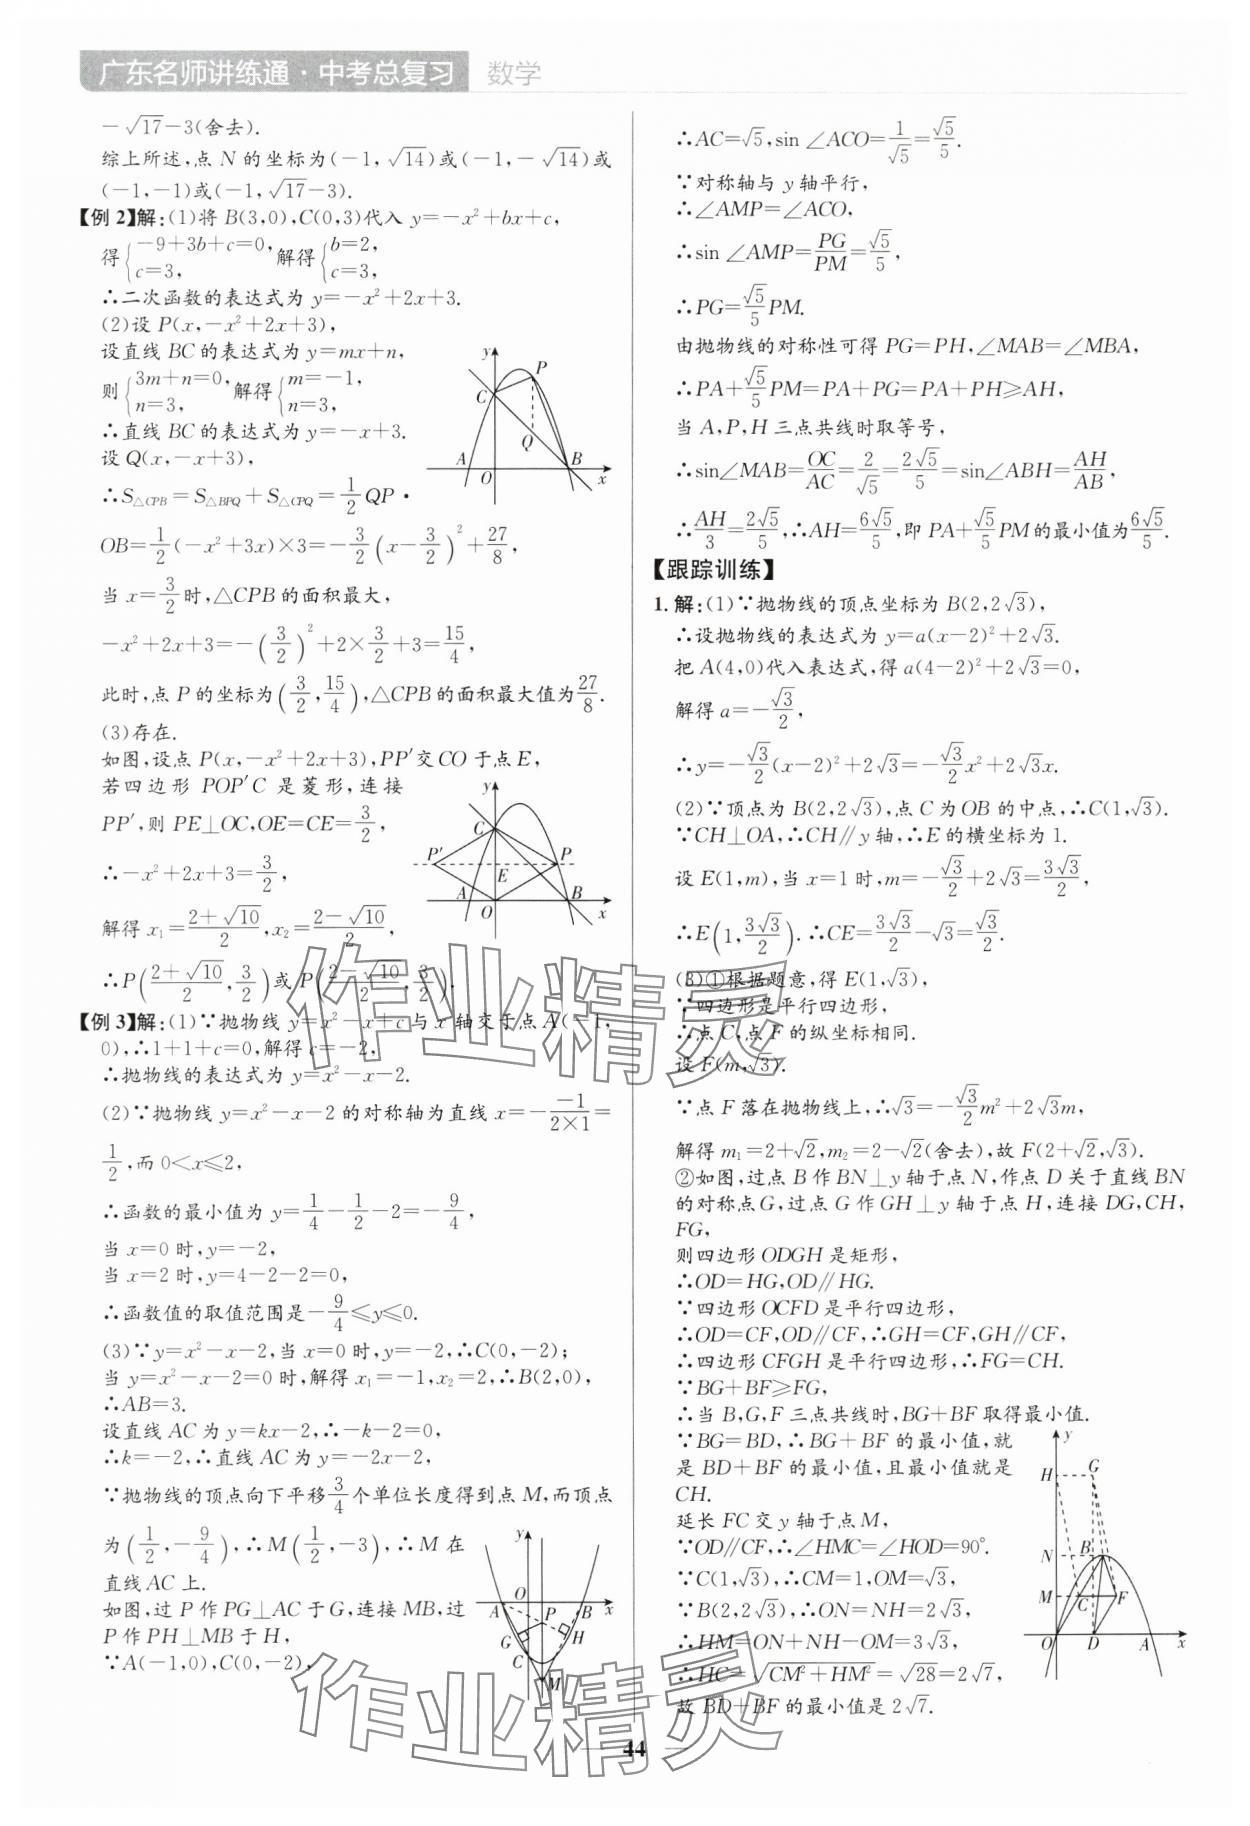 广东名师讲练通·中考总复习 数学
-√17-3(舍去).
综上所述,点 N 的坐标为(-1,√14)或(-1,-√14)或
(-1,-1)或(-1,√17-3).
【例2】解:(1)将 B(3,0),C(0,3)代入 y=-x²+bx+c,
得{-9+3b+c=0, c=3, 解得{b=2, c=3,
∴二次函数的表达式为 y=-x²+2x+3.
(2)设 P(x,-x²+2x+3),
设直线 BC 的表达式为 y=mx+n,
则{3m+n=0, n=3, 解得{m=-1, n=3,
∴直线 BC 的表达式为 y=-x+3.
设 Q(x,-x+3),
∴S△CPB=S△BPQ+S△CPQ=1/2 QP·
OB=1/2(-x²+3x)×3=-3/2(x-3/2)²+27/8,
当 x=3/2 时,△CPB 的面积最大,
-x²+2x+3=-(3/2)²+2×3/2+3=15/4,
此时,点 P 的坐标为(3/2,15/4),△CPB 的面积最大值为27/8.
(3)存在.
如图,设点 P(x,-x²+2x+3),PP′交 CO 于点 E,
若四边形 POP′C 是菱形,连接
PP′,则 PE⊥OC,OE=CE=3/2,
∴-x²+2x+3=3/2,
解得 x₁=(2+√10)/2,x₂=(2-√10)/2,
∴P((2+√10)/2,3/2)或 P((2-√10)/2,3/2).
【例3】解:(1)∵抛物线 y=x²-x+c 与 x 轴交于点 A(-1,
0),∴1+1+c=0,解得 c=-2,
∴抛物线的表达式为 y=x²-x-2.
(2)∵抛物线 y=x²-x-2 的对称轴为直线 x=-(-1)/(2×1)=
1/2,而 0<x≤2,
∴函数的最小值为 y=1/4-1/2-2=-9/4,
当 x=0 时,y=-2,
当 x=2 时,y=4-2-2=0,
∴函数值的取值范围是-9/4≤y≤0.
(3)∵y=x²-x-2,当 x=0 时,y=-2,∴C(0,-2);
当 y=x²-x-2=0 时,解得 x₁=-1,x₂=2,∴B(2,0),
∴AB=3.
设直线 AC 为 y=kx-2,∴-k-2=0,
∴k=-2,∴直线 AC 为 y=-2x-2.
∵抛物线的顶点向下平移3/4个单位长度得到点 M,而顶点
为(1/2,-9/4),∴M(1/2,-3),∴M 在
直线 AC 上.
如图,过 P 作 PG⊥AC 于 G,连接 MB,过
P 作 PH⊥MB 于 H,
∵A(-1,0),C(0,-2),
∴AC=√5,sin∠ACO=1/√5=√5/5.
∵对称轴与 y 轴平行,
∴∠AMP=∠ACO,
∴sin∠AMP=PG/PM=√5/5,
∴PG=√5/5 PM.
由抛物线的对称性可得 PG=PH,∠MAB=∠MBA,
∴PA+√5/5 PM=PA+PG=PA+PH≥AH,
当 A,P,H 三点共线时取等号,
∴sin∠MAB=OC/AC=2/√5=2√5/5=sin∠ABH=AH/AB,
∴AH/3=2√5/5,∴AH=6√5/5,即 PA+√5/5 PM 的最小值为6√5/5.
【跟踪训练】
1.解:(1)∵抛物线的顶点坐标为 B(2,2√3),
∴设抛物线的表达式为 y=a(x-2)²+2√3.
把 A(4,0)代入表达式,得 a(4-2)²+2√3=0,
解得 a=-√3/2,
∴y=-√3/2(x-2)²+2√3=-√3/2 x²+2√3x.
(2)∵顶点为 B(2,2√3),点 C 为 OB 的中点,∴C(1,√3).
∵CH⊥OA,∴CH∥y 轴,∴E 的横坐标为 1.
设 E(1,m),当 x=1 时,m=-√3/2+2√3=3√3/2,
∴E(1,3√3/2). ∴CE=3√3/2-√3=√3/2.
(3)①根据题意,得 E(1,√3).
∵四边形是平行四边形,
∴点 C,点 F 的纵坐标相同.
设 F(m,√3).
∵点 F 落在抛物线上,∴√3=-√3/2 m²+2√3m,
解得 m₁=2+√2,m₂=2-√2(舍去),故 F(2+√2,√3).
②如图,过点 B 作 BN⊥y 轴于点 N,作点 D 关于直线 BN
的对称点 G,过点 G 作 GH⊥y 轴于点 H,连接 DG,CH,
FG,
则四边形 ODGH 是矩形,
∴OD=HG,OD∥HG.
∵四边形 OCFD 是平行四边形,
∴OD=CF,OD∥CF,∴GH=CF,GH∥CF,
∴四边形 CFGH 是平行四边形,∴FG=CH.
∵BG+BF≥FG,
∴当 B,G,F 三点共线时,BG+BF 取得最小值.
∵BG=BD,∴BG+BF 的最小值,就
是 BD+BF 的最小值,且最小值就是
CH.
延长 FC 交 y 轴于点 M,
∵OD∥CF,∴∠HMC=∠HOD=90°.
∵C(1,√3),∴CM=1,OM=√3,
∵B(2,2√3),∴ON=NH=2√3,
∴HM=ON+NH-OM=3√3,
∴HC=√(CM²+HM²)=√28=2√7,
故 BD+BF 的最小值是 2√7.
44
作业精灵
作业精灵